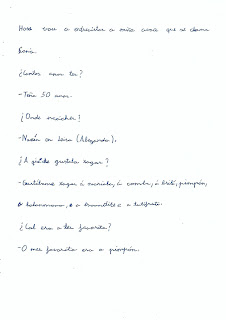 Hoxe vou a entrevistar a miña avoa que se chama
Sonia.
¿Cantos anos tes?
-Teño 50 anos.
¿Onde naciches?
-Nacín en Laira (Abegondo).
¿A qué che gustaba xogar?
-Gustábame xogar á mariola, á comba, á brilé, pimpón,
e balonmano, e a e a tutifruti.
¿Cal era o teu favorito?
-O meu favorito era o pimpón.